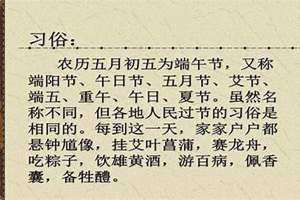 习俗：
农历五月初五为端午节，又称
端阳节、午日节、五月节、艾节、
端五、重午、午日、夏节。虽然名
称不同，但各地人民过节的习俗是
相同的。每到这一天，家家户户都
悬钟馗像，挂艾叶菖蒲，赛龙舟，
吃粽子，饮雄黄酒，游百病，佩香
囊，备牲醴。